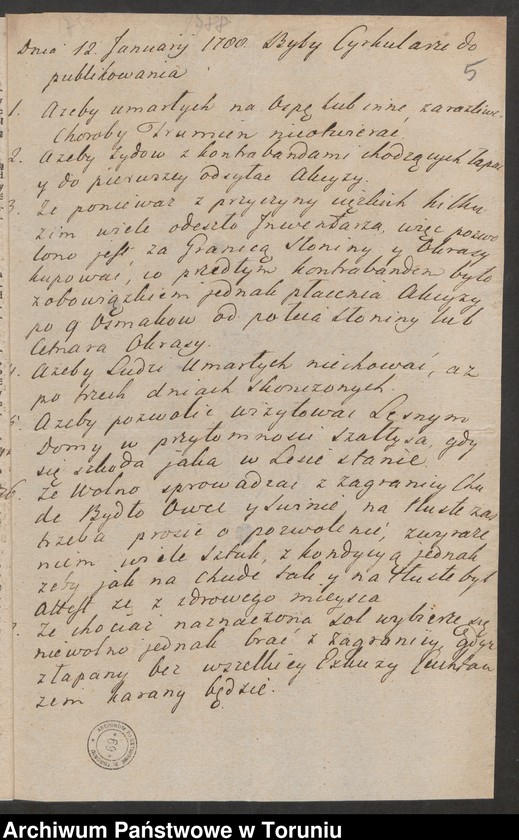 1788
5
Dnia 12. Januarij 1788 Byby Cyrkularze do
publikowania
1. Azeby umarłych na Ospę lub inne zaraźliwe
Choroby Trumien nieotwierać
2. Azeby Żydow z kontrabandami chodzących łapać
y do pierwszey odsyłać Akcyzy.
3. Że ponieważ z przyczyny ciężkich kilku
zim wiele odeszło Inwentarza, więc pozwo
lono jest, za Granicą Słoniny y Okrasy
kupować, co przedtym kontrabandem było
zobowiązkiem jednak płacenia Akcyzy
po 9 Osmakow od połcia słoniny lub
Cetnara Okrasy.
4. Azeby Ludzi Umarłych niechować, aż
po trzech dniach skonczonych.
5. Azeby pozwolić wizytować Lesnym
Domy w przytomnosci Szałtysa, gdy
się szkoda jaka w Lesie stanie.
6. Że Wolno sprowadzać z zagranicy Chu
de Bydło Owce y Swinie, na tłuste zaś
trzeba prosic o pozwolenie, zwyraże
niem wiele sztuk, z kondycyą jednak
zeby jak na chude tak y na tłuste był
Attest że z zdrowego mieysca
7. Że chociaż naznaczona sol wybierze się
niewolno jednak brać z zagranicy, gdyż
złapany bez wszelkiey Exkuzy
zem karany będzie.
ARCHIWUM PAŃSTWOWE
W TORUNIU
69
Archiwum Państwowe w Toruniu